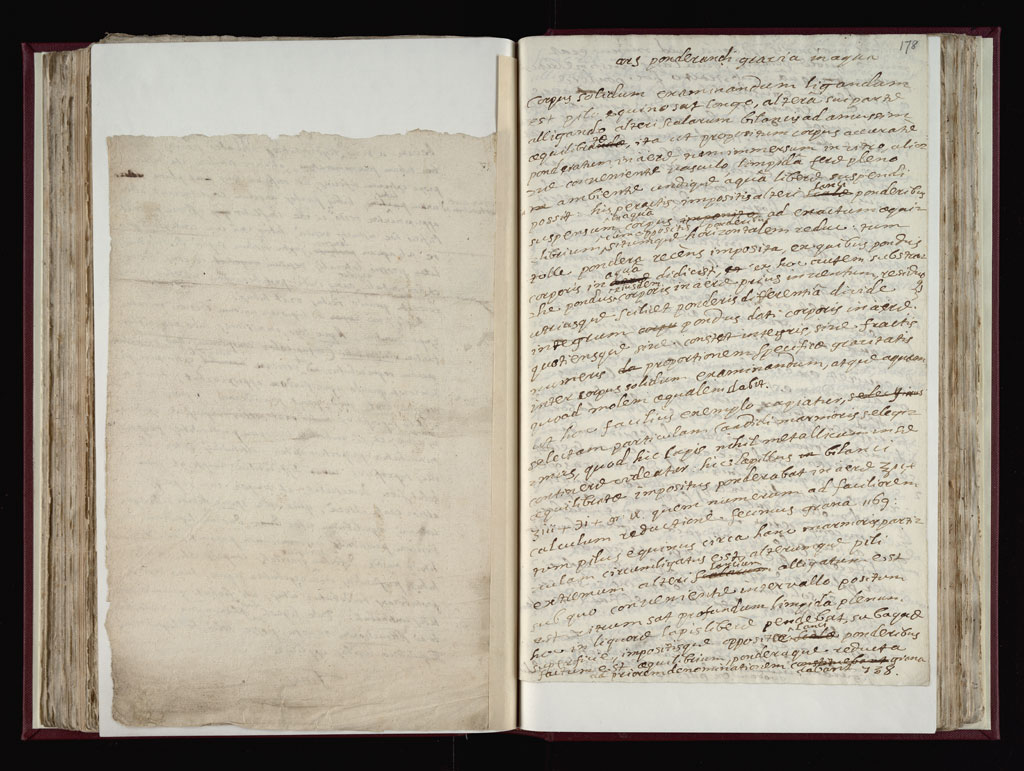 178
ars ponderandi gravia in aqua
Corpus solidum examinandum ligandum
est pilo equino sat longo, alterâ sui parte
alligando alteri scalarum bilancis ad amussim
æquilibratæ, ita ut propositum corpus accuratè
ponderatum in aere, non immersum in vitro aliove
conveniente vasculo limpidâ ferè pleno
ambiente undique aquâ liberè suspendi
possit. his peractis impositis alteri lanci ponderibus
suspensum corpus in aqua ad exactum æqui-
cum oppositis ponderibus
librium situmque horizontalem reductum
tolle pondera recens imposita, ex quibus pondus
corporis in aqua didicisti, ex hoc autem substra-
he pondus ejusdem corporis in aere prius inventum, residuo
utriusque scilicet ponderis differentiâ divide
integrum pondus dati corporis in aere
quotiensque sive constet integris sive fractis
numeris proportionem specificæ gravitatis
inter corpus solidum examinandum, atque aquam
quoad molem æqualem dabit.
ut hoc facilius exemplo capiatur,
selectam particulam candidi marmoris selegi-
mus, quod hic lapis nihil metallicum in se
continere videatur. hic lapillus bilanci
æquilibratæ impositus ponderabat in aere
quem numerum ad faciliorem
calculum reductione fecimus grana 1169.
tum pilus equinus circa hanc marmoris parti-
culam circumligatus est, alterumque pili
extremum alteri lancium alligatum est
sub quo conveniente intervallo positum
est vitrum sat profundum limpidâ plenum.
hoc in liquore lapis liberè pendebat, sub aquæ
superficie, impositisque oppositæ lanci ponderibus
factum est æquilibrium, ponderaque reducta
ad priorem denominationem grana
dabant 738.